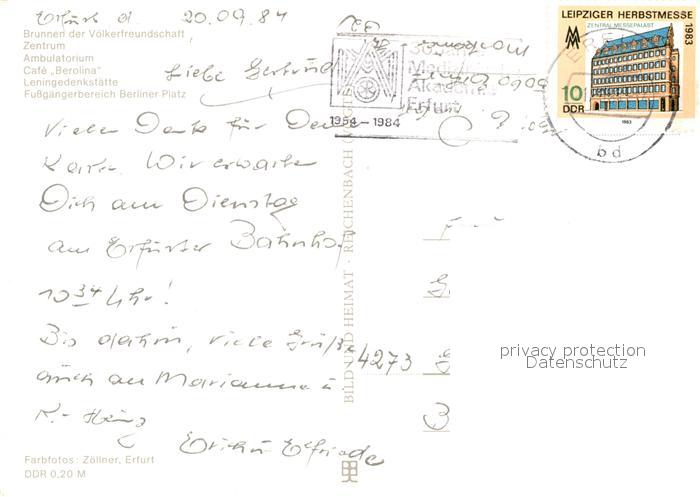 Erfurt d 20.09.84
Brunnen der Völkerfreundschaft
Zentrum
Ambulatorium
Café „Berolina"
Leningedenkstätte
Fußgängerbereich Berliner Platz
Liebe Gertrud
Viele Dank für Deine
Karte. Wir erwarten
Dich am Dienstag
am Erfurter Bahnhof
10 34 Uhr!
Bis dahin, viele Grüße
auch an Marianne u
K.-Heinz
Erich u Elfriede
Farbfotos: Zöllner, Erfurt
DDR 0,20 M
BILD UND HEIMAT · REICHENBACH
Medizinische
Akademie
Erfurt
1954 – 1984
LEIPZIGER HERBSTMESSE
1983
ZENTRAL-MESSEPALAST
10
DDR
1983
bd
4273
privacy protection
Datenschutz